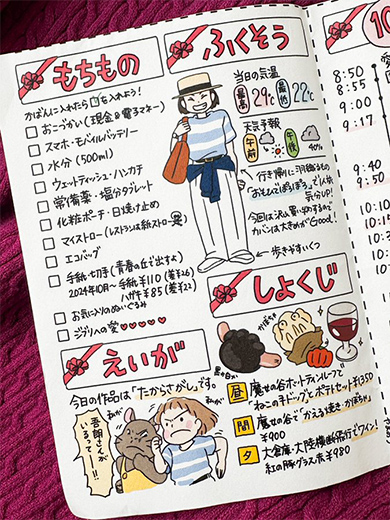 もちもの
かばんに入れたら☑を入れよう!
おこづかい(現金&電子マネー)
スマホ・モバイルバッテリー
水分(500ml)
ウェットティッシュ・ハンカチ
常備薬・塩分タブレット
化粧ポーチ・日焼け止め
マイストロー(レストランは紙ストロー)
エコバッグ
手紙・切手(青春の丘で出すよ)
2024年10月〜 手紙¥110(差¥26)
ハガキ¥85(差¥22)
お気に入りのぬいぐるみ
ジブリへの愛♥♥♥♥♥
ふくそう
当日の気温
最高 29℃ 最低 22℃
天気予報
午前 午後 40%
行き際に羽織るもの
気分UP!
今回は沢山買い物するので
カバンは大きめがGood!
←歩きやすいくつ
しょくじ
かぼちゃ
昼 魔女の谷ホットティンレンフで
「ねこの手ドッグ」とポテトセット¥1350
間 魔女の谷で「かえる焼き・かぼちゃ」
¥400
夕 大倉庫・大陸横断飛行でワイン!
紅の豚グラス・赤¥980
えいが
今日の作品は「たからさがし」です。
吾朗さんが
いるってーー!!
10
8:50
8:55
9:00
9:17
9:40
9:50
10:10